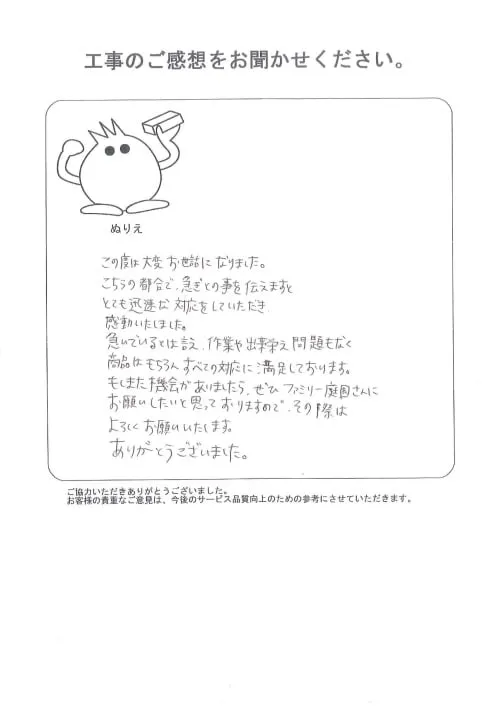 工事のご感想をお聞かせください。
ぬりえ
この度は大変お世話になりました。
こちらの都合で、急ぎとの事を伝えますと
とても迅速な対応をしていただき
感動いたしました。
急いでいるとは言え、作業や出来栄え問題もなく
商品はもちろんすべての対応に満足しております。
もしまた機会がありましたら、ぜひファミリー庭園さんに
お願いしたいと思っておりますので、その際は
よろしくお願いいたします。
ありがとうございました。
ご協力いただきありがとうございました。
お客様の貴重なご意見は、今後のサービス品質向上のための参考にさせていただきます。